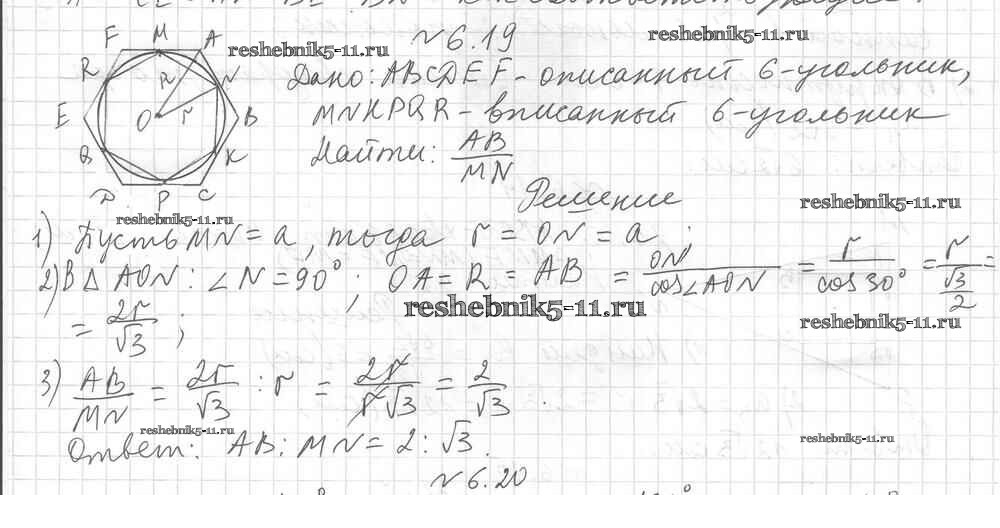 F M A
reshebnik5-11.ru
№ 6.19
reshebnik5-11.ru
R R N
Дано: ABCDEF - описанный 6-угольник,
E O r B
MNKPQR - вписанный 6-угольник
Q K
Найти: AB/MN
D P C
Решение
reshebnik5-11.ru
reshebnik5-11.ru
1) Пусть MN = a, тогда r = ON = a.
2) В △ AON: ∠N = 90°; OA = R = AB = ON/cos∠AON = r/cos 30° = r/(√3/2) =
reshebnik5-11.ru
= 2r/√3;
reshebnik5-11.ru
3) AB/MN = 2r/√3 : r = 2r/r√3 = 2/√3.
reshebnik5-11.ru
Ответ: AB : MN = 2 : √3.
reshebnik5-11.ru
№ 6.20